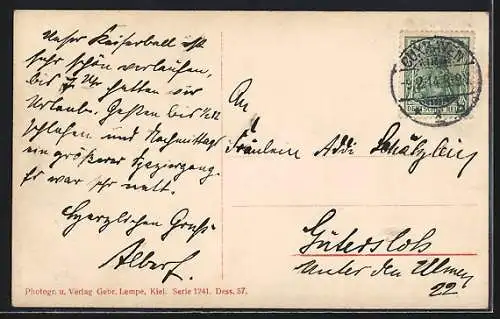 Unser Kaiserball ist
sehr schön verlaufen,
bis 7 Uhr hatten wir
Urlaub. Gestern bis ½12
schlafen und Nachmittags
ein größerer Spaziergang.
Es war sehr nett.
Herzlichen Gruß
Albert.
An
Fräulein Addi
Gütersloh
Unter den Ulmen
22
CUXHAVEN
Photogr. u. Verlag Gebr. Lempe, Kiel. Serie 1241. Dess. 57.